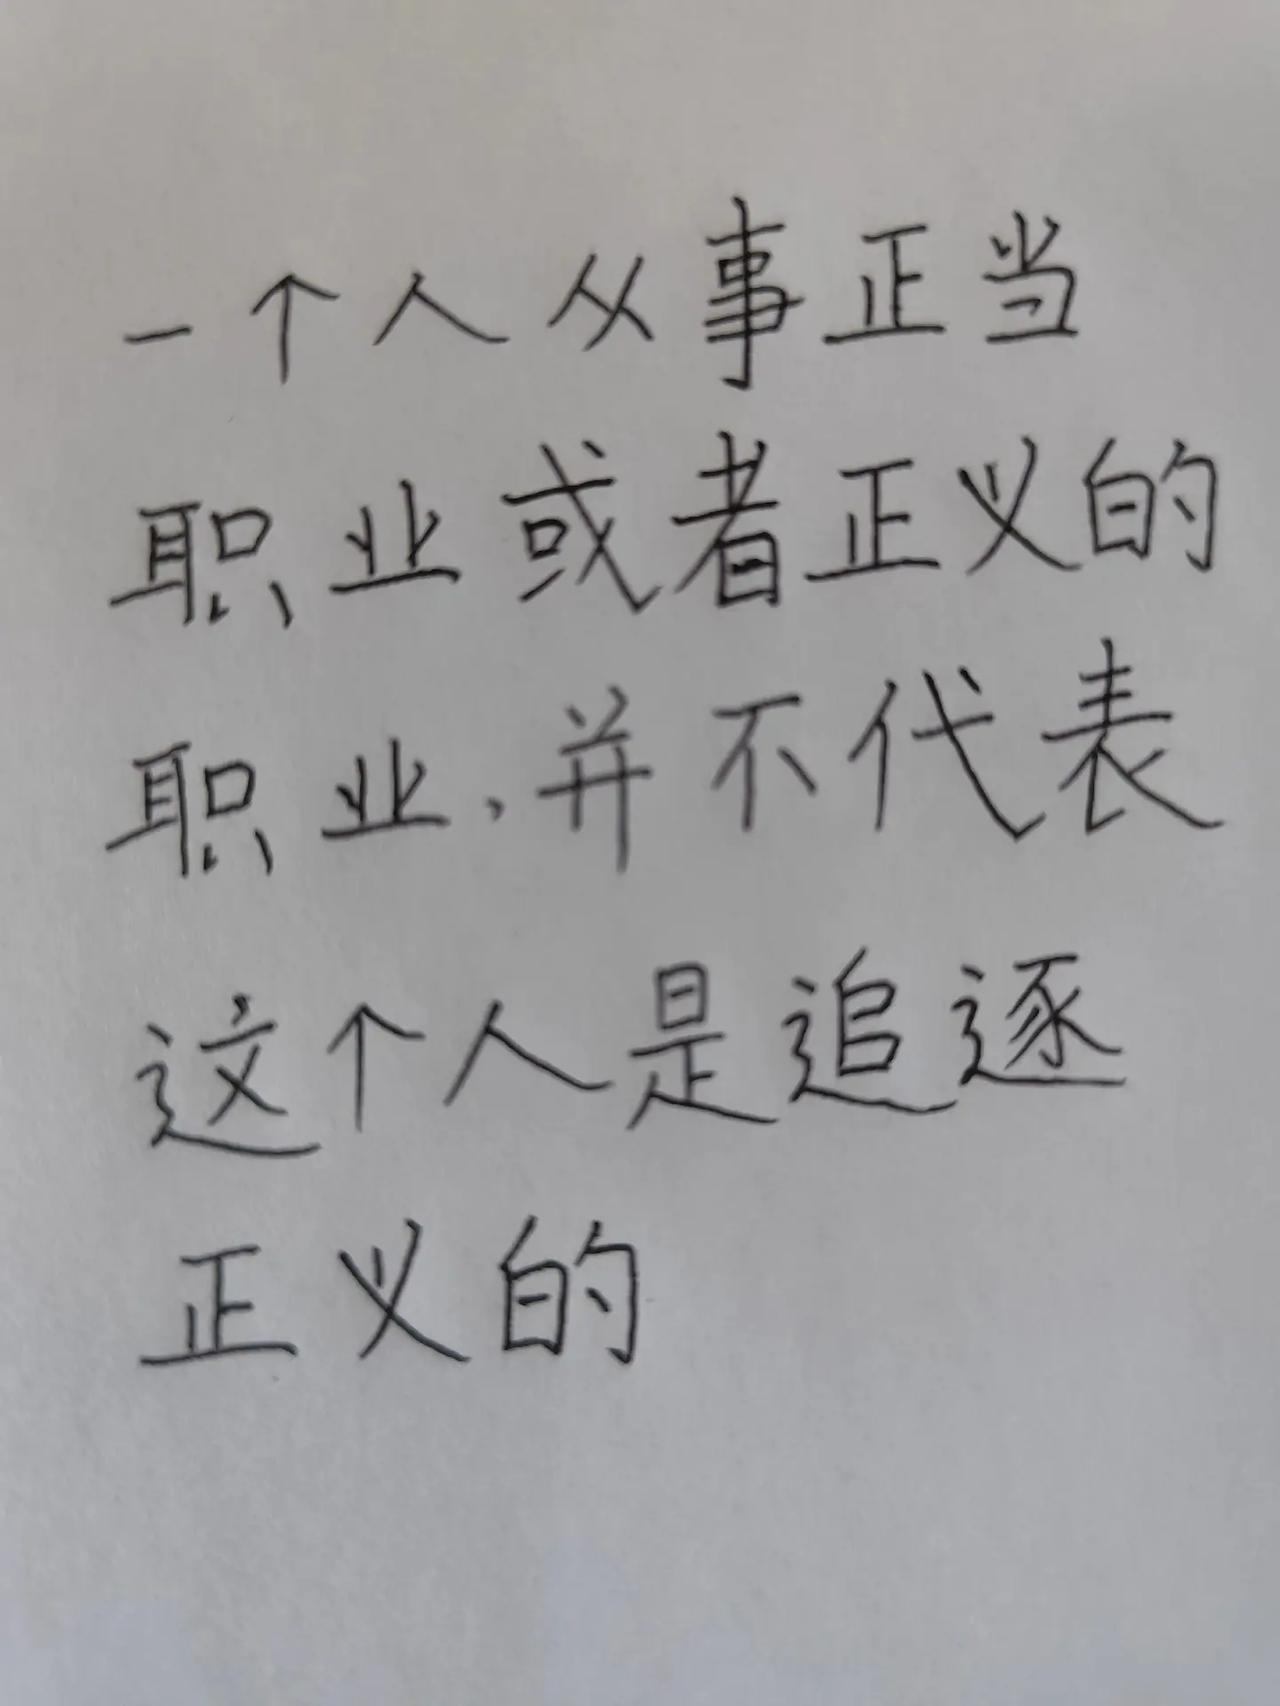 一个人从事正当
职业或者正义的
职业,并不代表
这个人是追逐
正义的